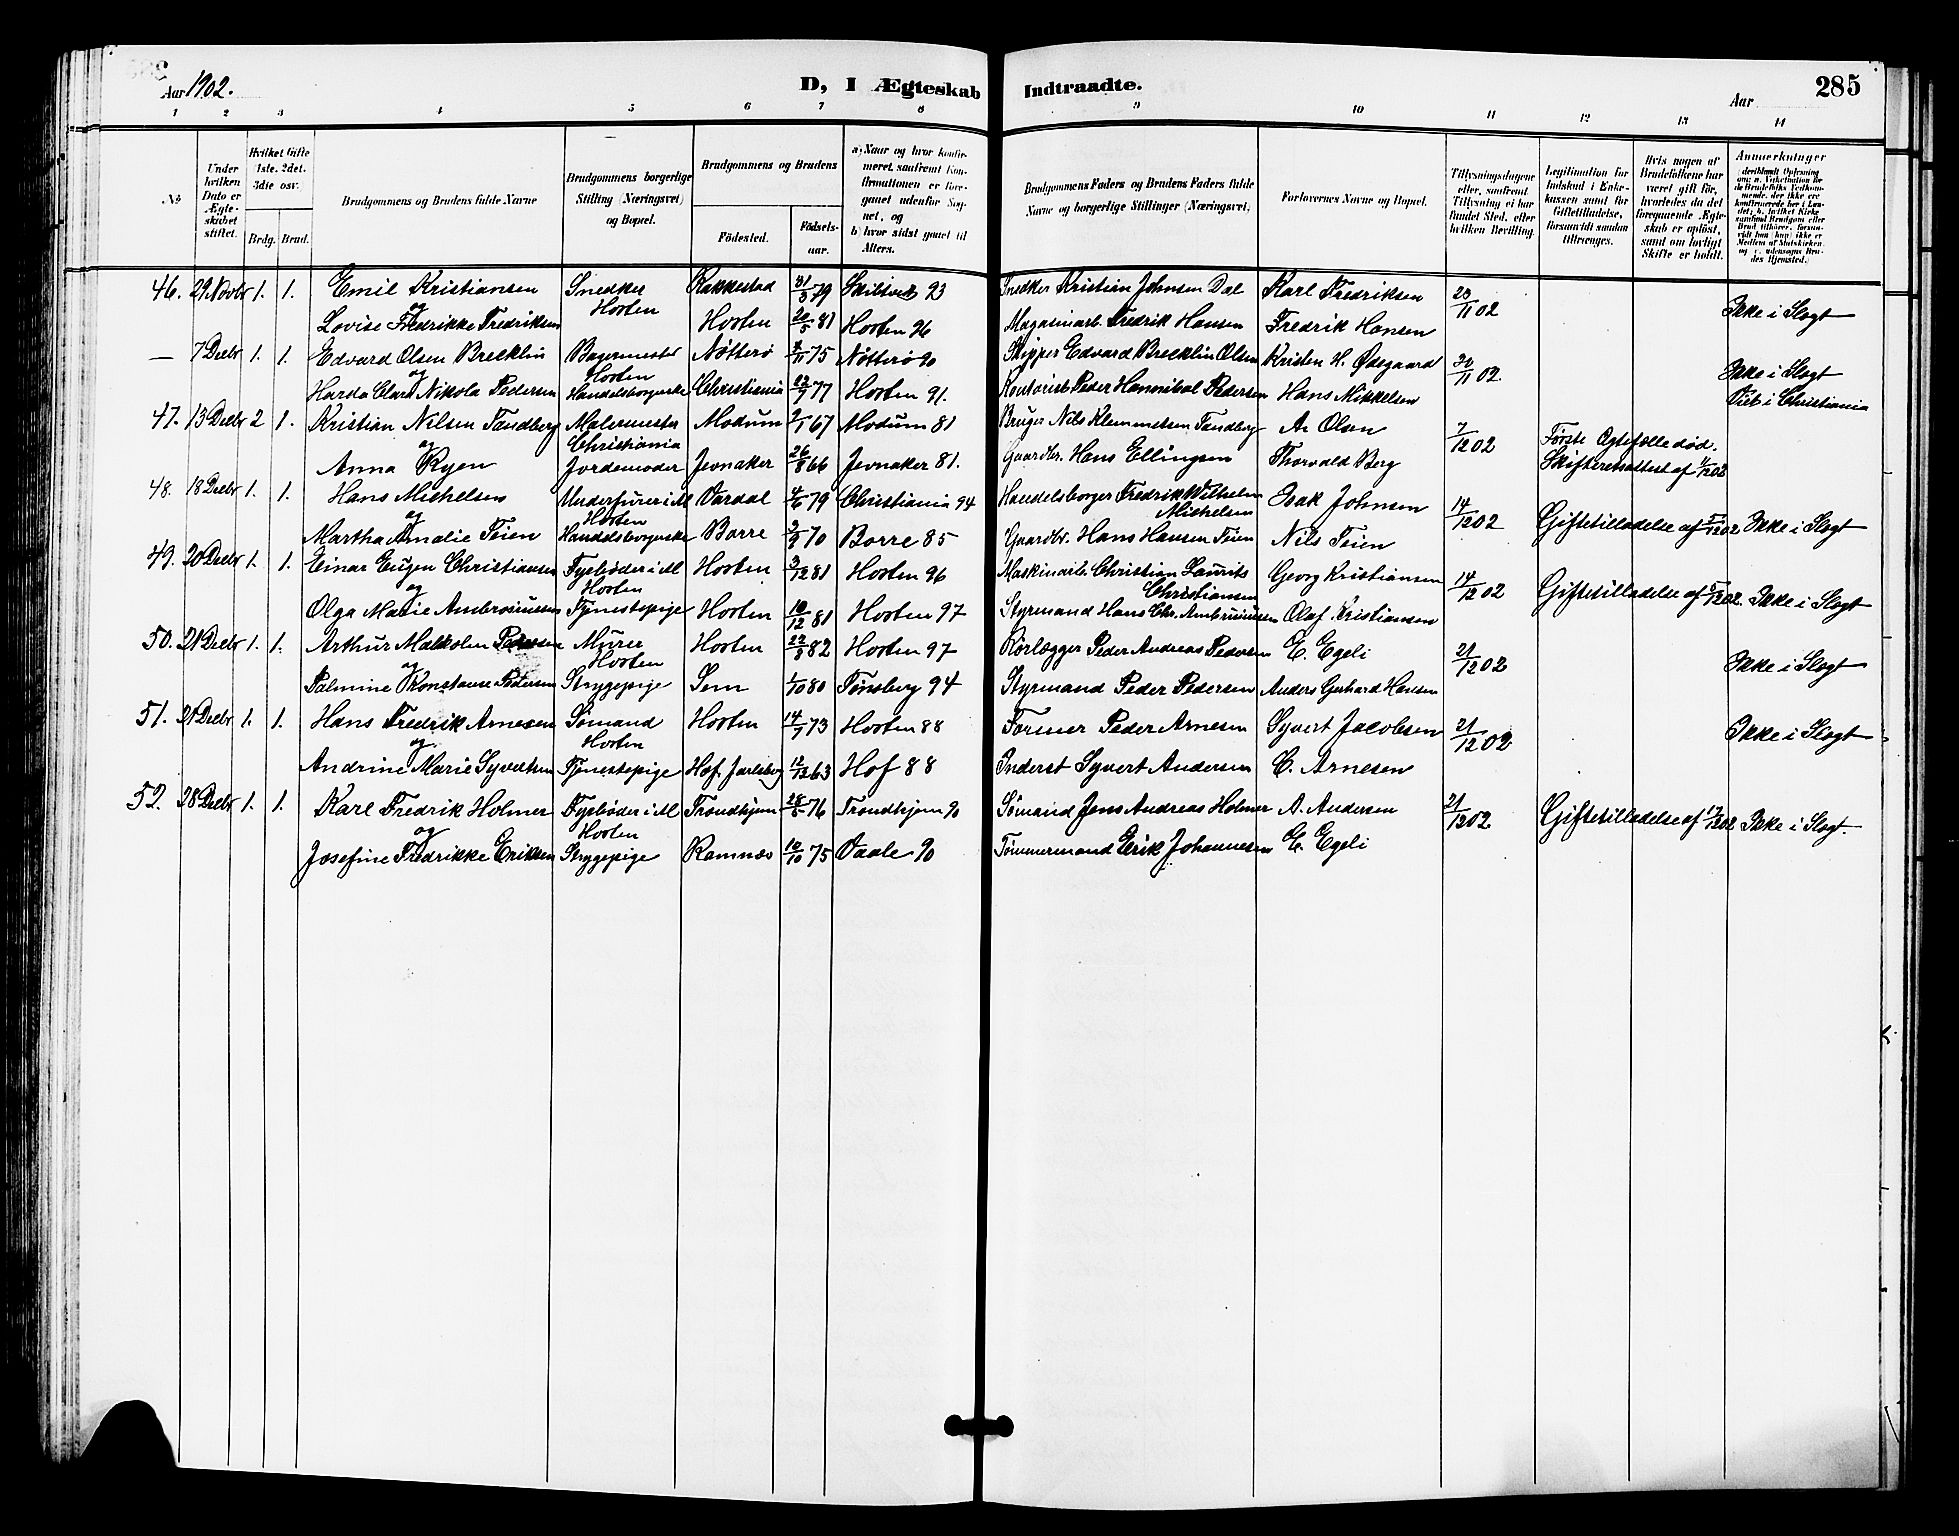 Aar 1902.
D, I Ægteskab Indtraadte.
Aar
285
1 2 3 4 5 6 7 8 9 10 11 12 13 14
No
Under hvilken Dato er Ægteskabet stiftet.
Hvilket Gifte 1ste. 2det. 3die osv.
Brdg. Brud.
Brudgommens og Brudens fulde Navne
Brudgommens borgerlige Stilling (Næringsvei) og Bopæl.
Brudgommens og Brudens
Fødested. Fødselsaar.
a) Naar og hvor konfirmeret, saafremt Konfirmationen er foregaaet udenfor Sognet, og
b) hvor sidst gaaet til Alters.
Brudgommens Faders og Brudens Faders fulde Navne og borgerlige Stillinger (Næringsvei)
Forlovernes Navne og Bopæl.
Tillysningsdagene eller, saafremt Tillysning ei har fundet Sted, efter hvilken Bevilling.
Legitimation for Indskud i Enkekassen samt for Giftetilladelse, forsaavidt saadan tiltrænges.
Hvis nogen af Brudefolkene har været gift før, hvorledes da det foregaaende Ægteskab er opløst, samt om lovligt Skifte er holdt.
Anmærkninger
46. 29 Novbr 1. 1. Emil Kristiansen Snedker Rakkestad 31/3 79 Skibtvet 93 Snedker Kristian Johnsen Dal Karl Fredriksen 23/11 02 Ikke i Slægt
og Horten
Lovise Fredrikke Fredriksen Horten 20/5 81 Horten 96 Magasinarb. Fredrik Hansen Fredrik Hansen
— 7 Decbr 1. 1. Edvard Olsen Brecklin Bagermester Nøtterø 75 Nøtterø 90 Skipper Edvard Brecklin Olsen Kristen H. Ødegaard 30/11 02. Ikke i Slægt
og Horten
Clara Nikola Pedersen Handelsborgerske Christiania 77 Horten 91. Kontorist Peder Hannibal Pedersen Hans Mikkelsen Viet i Christiania
47. 13 Decbr 2 1. Kristian Nilsen Tandberg Malermester Modum 67 Modum 81 Bruger Nils Klemmetsen Tandberg A. Olsen 7/12 02 Første Ægtefælle død.
og Christiania Skifteretsattest af 1/12 02
Anna Ryen Jordemoder Jevnaker 26/8 66 Jevnaker 81. Gaardbr. Hans Ellingsen Thorvald Berg
48. 18 Decbr 1. 1. Hans Michelsen Underfyrer i M Vardal 4/6 79 Christiania 94 Handelsborger Fredrik Wilhelm Michelsen Isak Johnsen 14/12 02 Giftetilladelse af Ikke i Slægt
og Horten
Martha Amalie Teien Handelsborgerske Borre 70 Borre 85 Gaardbr. Hans Hansen Teien Nils Teien
49. 20 Decbr 1. 1. Einar Eugen Christiansen Fyrbøder i M Horten 3/12 81 Horten 96 Maskinarb. Christian Laurits Christiansen Georg Kristiansen 14/12 02 Giftetilladelse af Ikke i Slægt
og Horten
Olga Marie Ambrosiussen Tjenestepige Horten 10/12 81 Horten 97 Styrmand Hans Chr. Ambrosiussen Olaf Kristiansen
50. 21 Decbr 1. 1. Arthur Malkolm Pedersen Murer Horten 22/8 82 Horten 97 Rørlægger Peder Andreas Pedersen E. Egeli 21/12 02 Ikke i Slægt
og Horten
Palmine Konstance Pedersen Strygepige Sem 1/10 80 Tønsberg 94 Styrmand Peder Pedersen Anders Gerhard Hansen
51. 21 Decbr 1. 1. Hans Fredrik Arnesen Sømand Horten 14/7 73 Horten 88 Former Peder Arnesen Syvert Jacobsen 21/12 02 Ikke i Slægt
og Horten
Andrine Marie Syvertsen Tjenestepige Hof. Jarlsberg 12/12 63 Hof 88 Inderst Syvert Andersen C. Arnesen
52. 28 Decbr 1. 1. Karl Fredrik Holmer Fyrbøder i M Trondhjem 76 Trondhjem 90 Sømand Jens Andreas Holmer A. Andersen 21/12 02 Giftetilladelse af Ikke i Slægt.
og Horten
Josefine Fredrikke Eriksen Strygepige Ramnæs 10/10 75 Vaale 90 Tømmermand Erik Johannesen E. Egeli